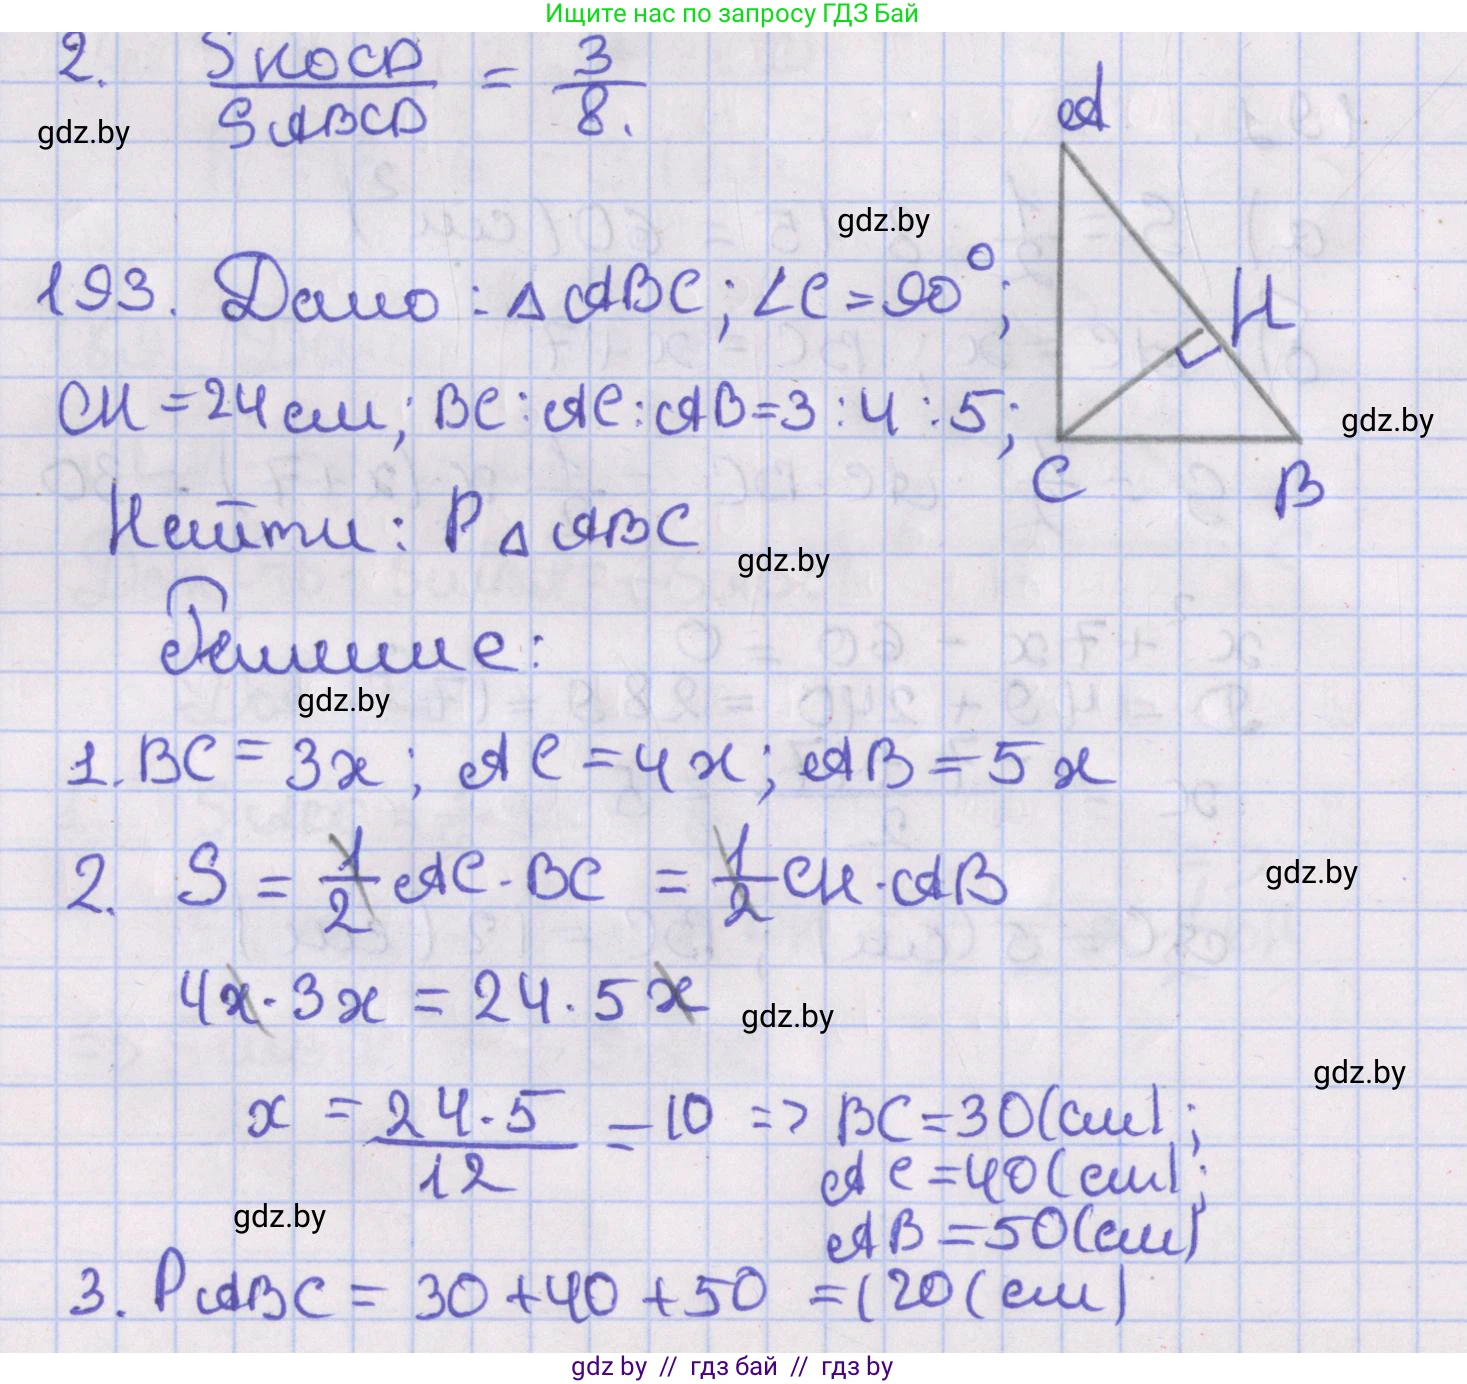 Ищите нас по запросу ГДЗ Бай
2. SKOCD / SABCD = 3 / 8.
gdz.by
A
gdz.by
193. Дано: △ABC; ∠C = 90°;
H
CH = 24 см; BC : AC : AB = 3 : 4 : 5;
gdz.by
C B
Найти: P△ABC
gdz.by
Решение:
gdz.by
1. BC = 3x; AC = 4x; AB = 5x
2. S = 1/2 AC · BC = 1/2 CH · AB
gdz.by
4x · 3x = 24 · 5x
gdz.by
gdz.by
x = 24 · 5 / 12 = 10 => BC = 30 (см);
AC = 40 (см);
gdz.by
AB = 50 (см)
3. PABC = 30 + 40 + 50 = 120 (см)
gdz by // гдз бай // гдз by